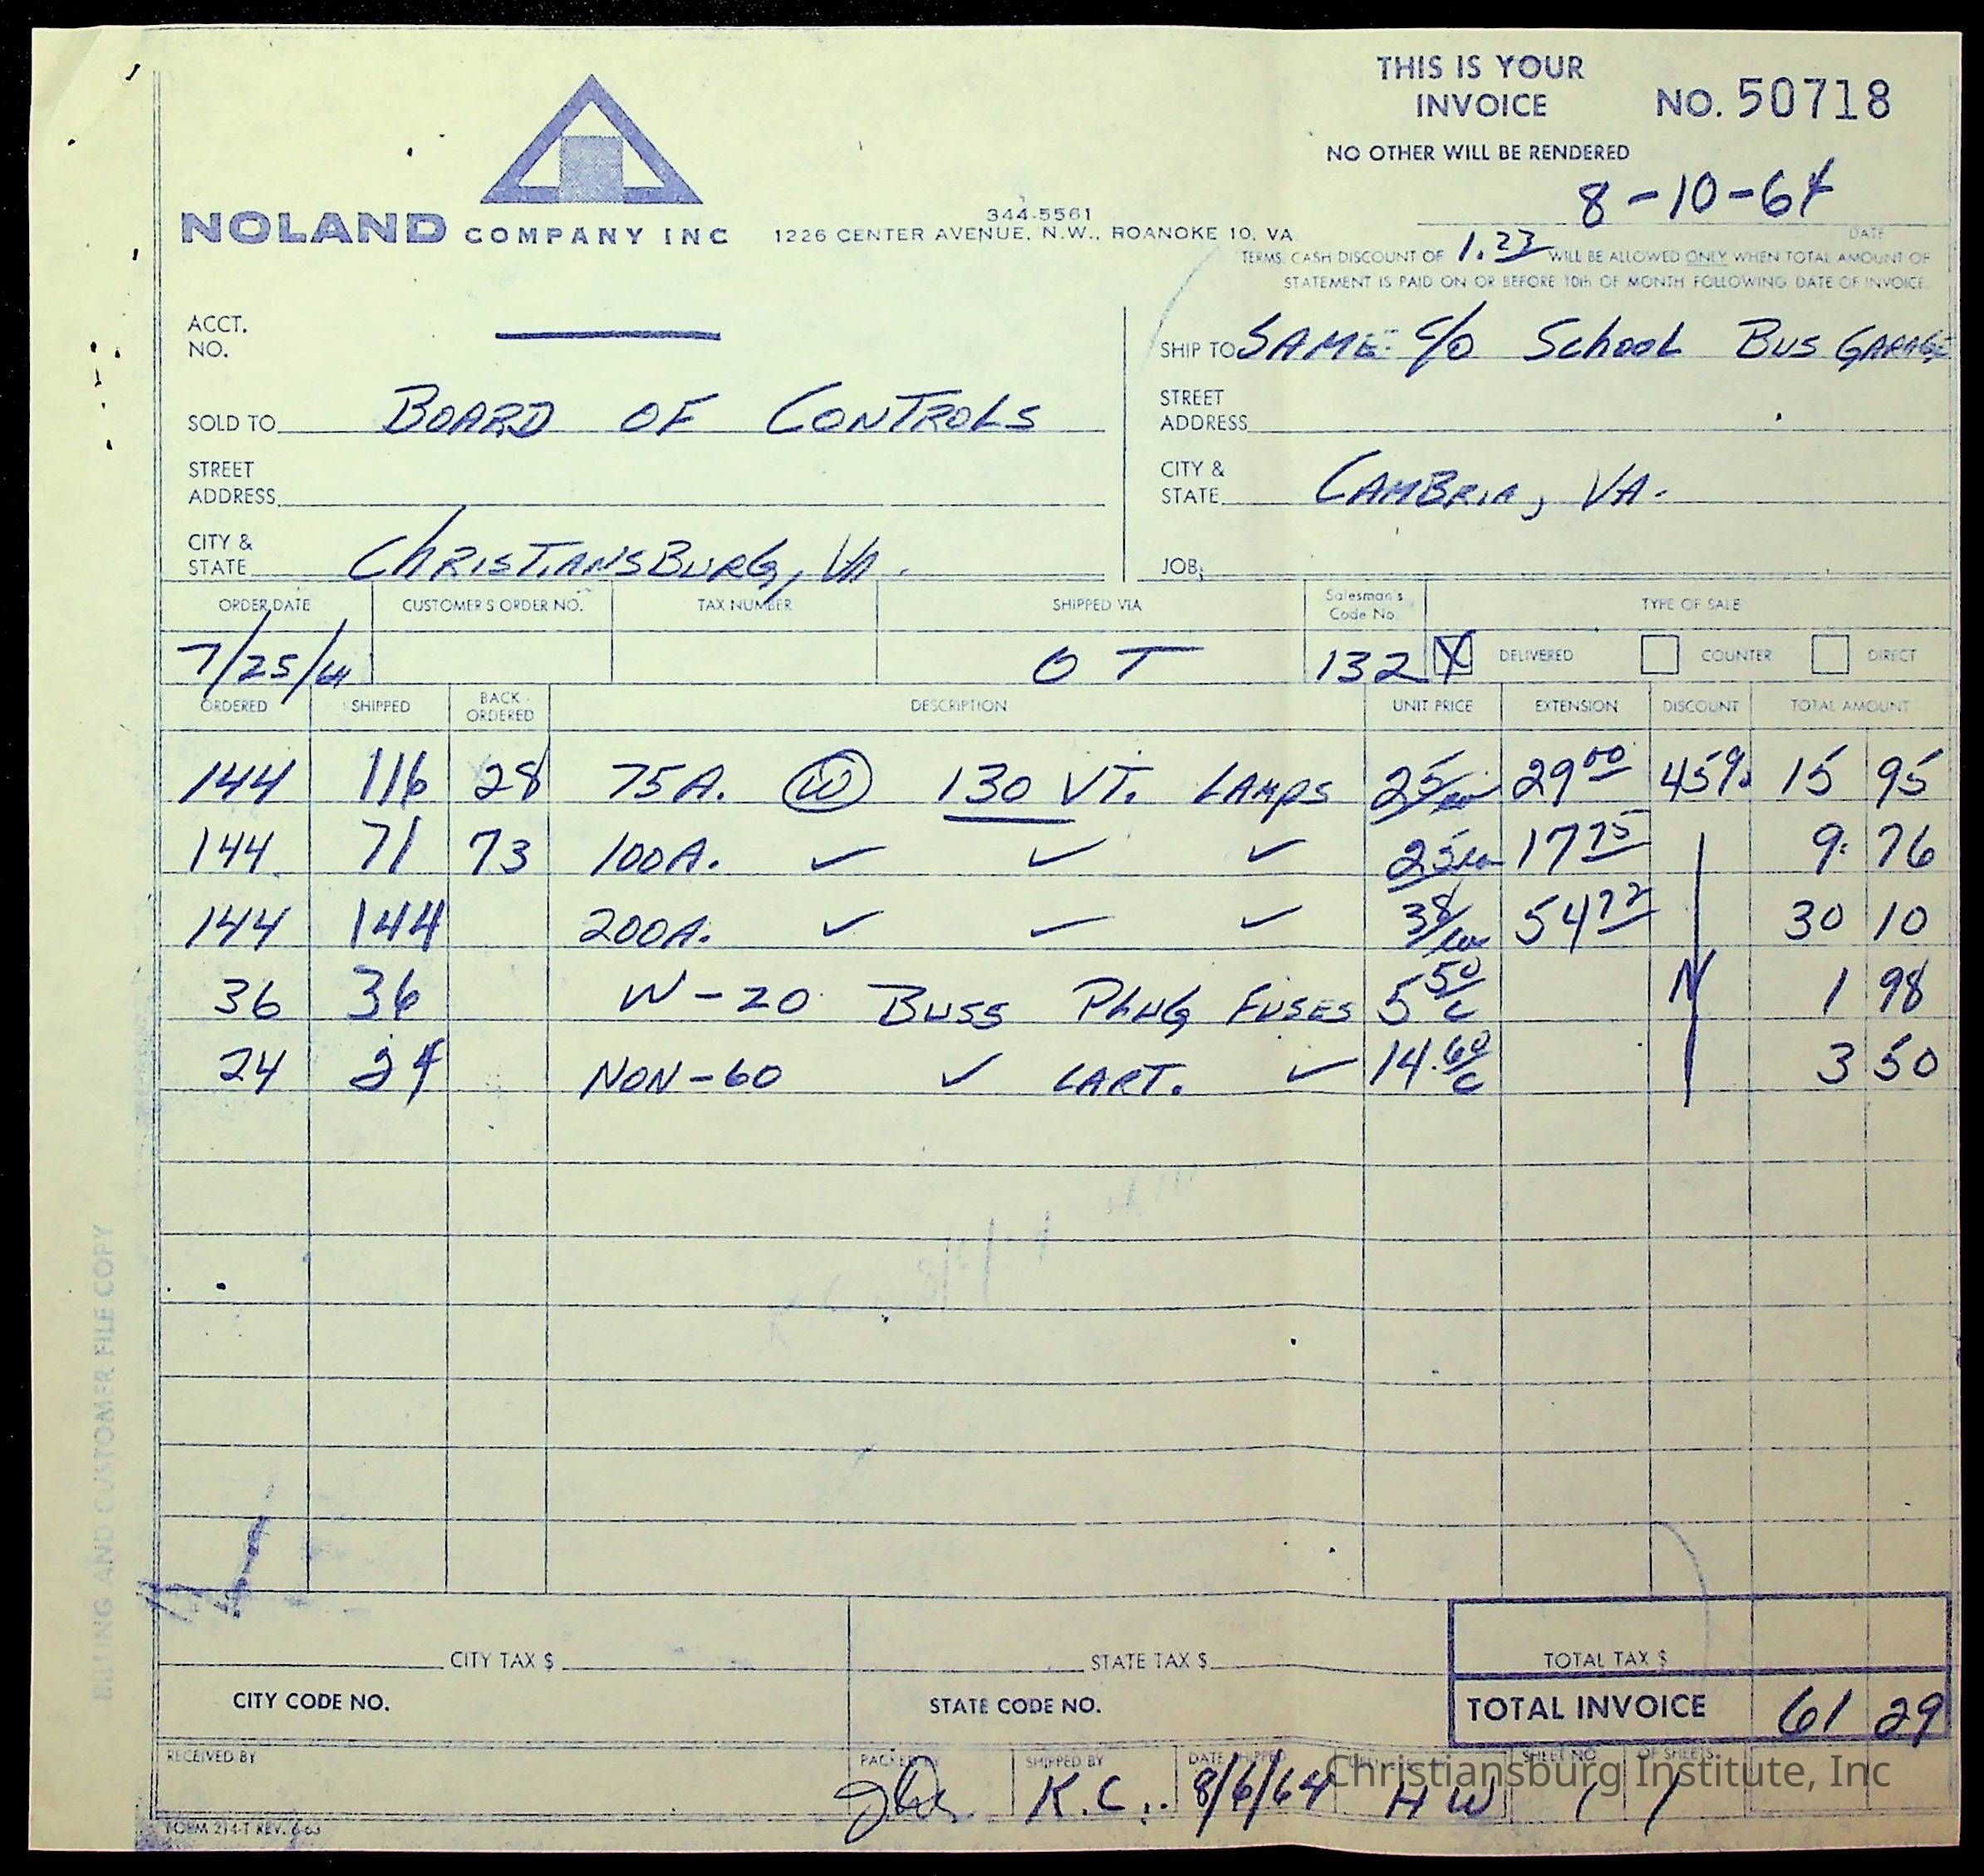 THIS IS YOUR
INVOICE NO. 50718
NO OTHER WILL BE RENDERED
8-10-64
DATE
NOLAND COMPANY INC
344-5561
1226 CENTER AVENUE, N.W., ROANOKE 10, VA
TERMS: CASH DISCOUNT OF 1.23 WILL BE ALLOWED ONLY WHEN TOTAL AMOUNT OF
STATEMENT IS PAID ON OR BEFORE 10th OF MONTH FOLLOWING DATE OF INVOICE.
ACCT.
NO.
SHIP TO SAME c/o School Bus GARAGE
SOLD TO BOARD OF CONTROLS
STREET
ADDRESS
STREET
ADDRESS
CITY &
STATE CAMBRIA, VA.
CITY &
STATE CHRISTIANSBURG, VA.
JOB:
ORDER DATE CUSTOMER'S ORDER NO. TAX NUMBER SHIPPED VIA Salesman's Code No. TYPE OF SALE
7/25/64 O T 132 X DELIVERED COUNTER DIRECT
ORDERED SHIPPED BACK ORDERED DESCRIPTION UNIT PRICE EXTENSION DISCOUNT TOTAL AMOUNT
144 116 28 75A. W 130 VT. LAMPS 25/ea 29.00 45% 15 95
144 71 73 100A. ✓ ✓ ✓ 25 ea 17 75 9. 76
144 144 200A. ✓ ✓ ✓ 38/ea 54 72 30 10
36 36 W-20 BUSS PLUG FUSES 5 50/C N 1 98
24 24 NON-60 ✓ CART. ✓ 14.60/C 3 50
BILLING AND CUSTOMER FILE COPY
CITY TAX $ STATE TAX $ TOTAL TAX $
CITY CODE NO. STATE CODE NO. TOTAL INVOICE 61 29
RECEIVED BY PACKED BY SHIPPED BY DATE SHIPPED SHEET NO. OF SHEETS
K.C. 8/6/64 HW 1 1
Christiansburg Institute, Inc
FORM 214-T REV. 6-63